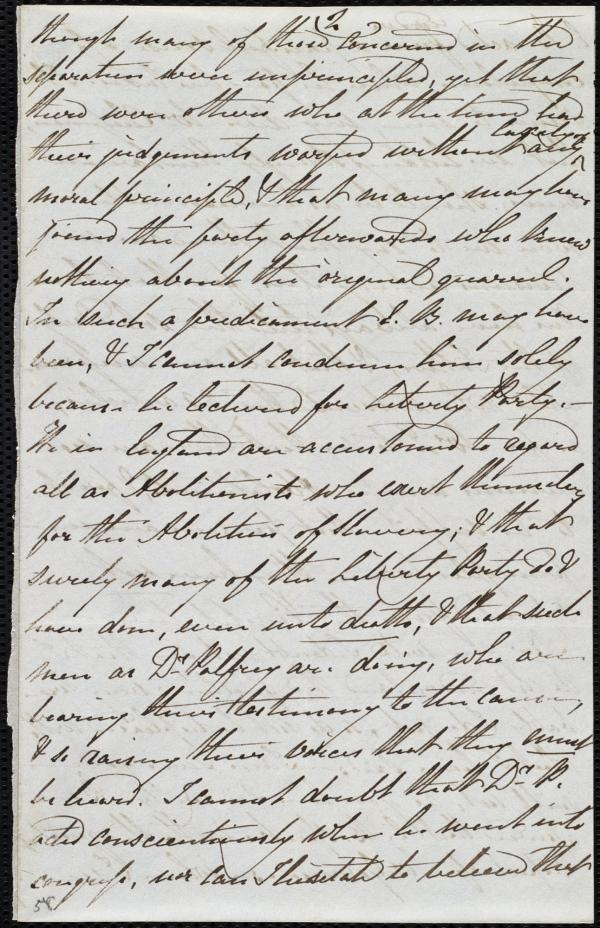 2
though many of those concerned in the
separation were unprincipled, yet that
there were others who at the time had
their judgements warped without laxity of any
moral principle, & that many may have
joined the party afterwards who knew
nothing about the original quarrel.
In such a predicament E. B. may have
been, & I cannot condemn him solely
because he lectured for Liberty Party. –
We in England are accustomed to regard
all as Abolitionists who exert themselves
for the Abolition of Slavery; & that
surely many of the Liberty Party do &
have done, even unto death, & that such
men as Dr Palfrey are doing, who are
bearing their testimony to the cause,
& so raising their voices that they must
be heard. I cannot doubt that Dr P.
acted conscientiously when he went into
congress, nor can I hesitate to believe that
58